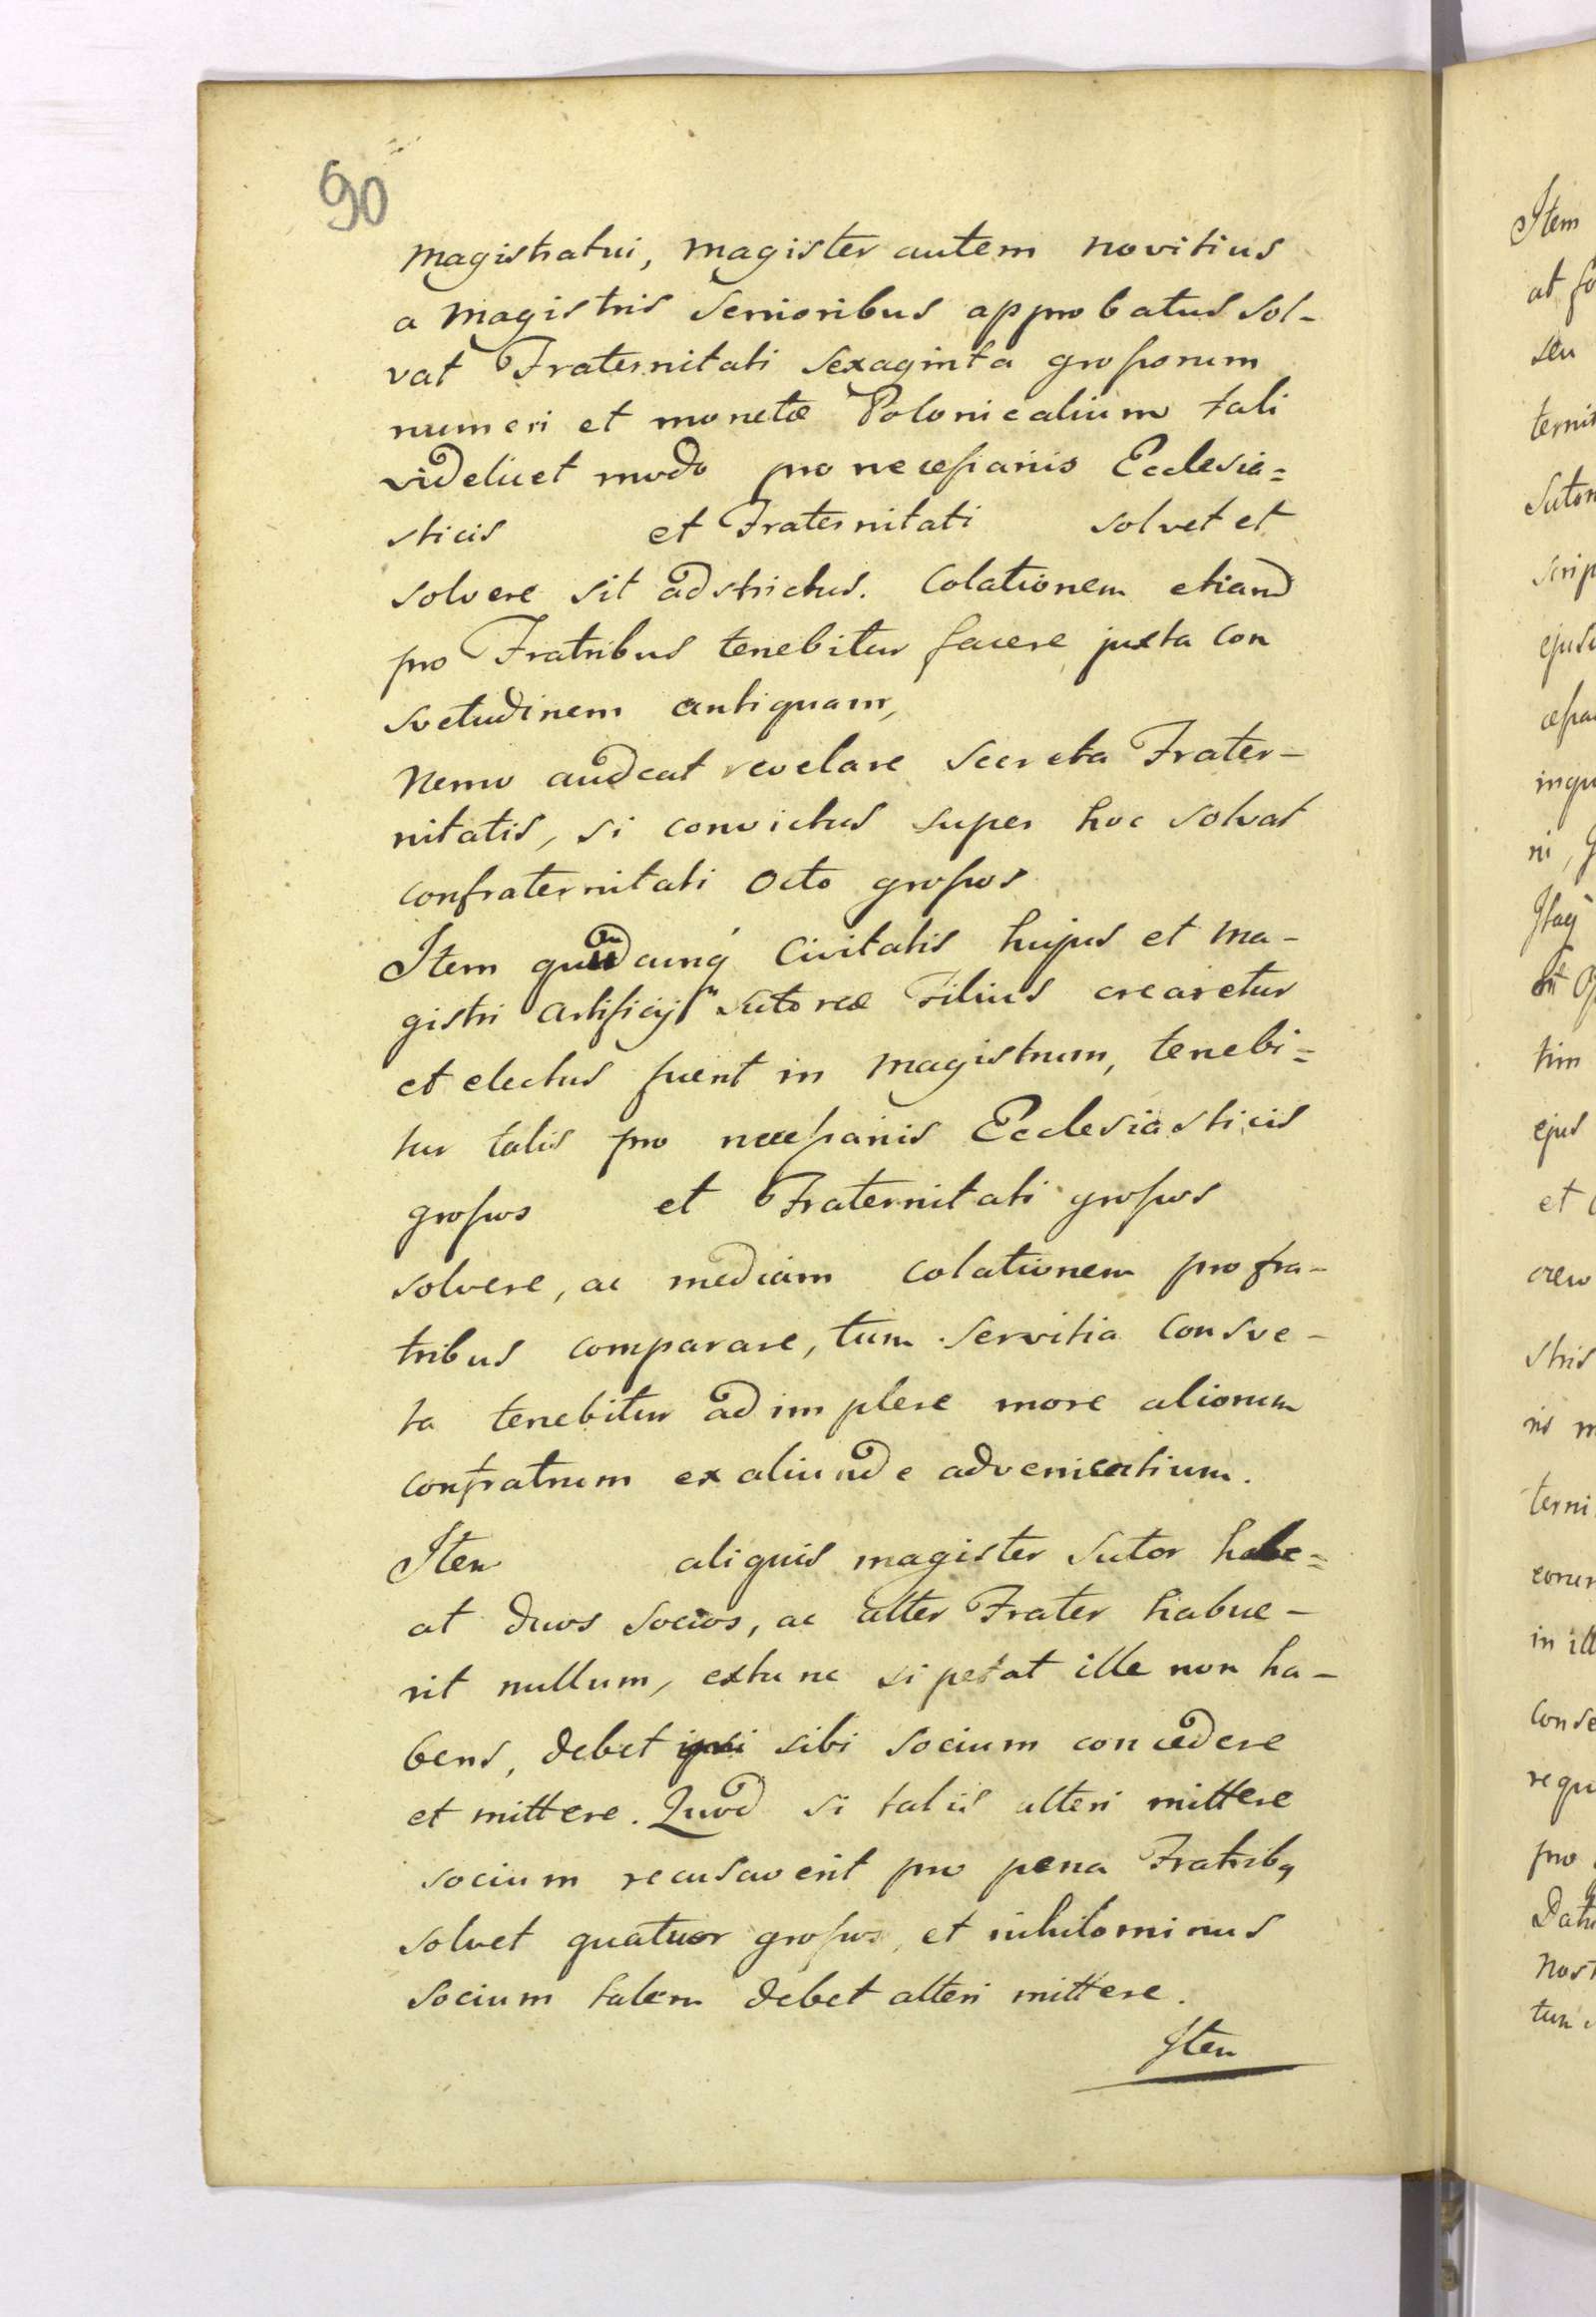 90
magistratui, magister autem novitius
a magistris senioribus approbatus sol-
vat Fraternitati sexaginta grossorum
numeri et monetæ Polonicalium tali
videlicet modo pro necessariis Ecclesia=
sticis et Fraternitati solvet et
solvere sit adstrictus. Colationem etiam
pro Fratribus tenebitur facere juxta con
svetudinem antiquam,
Nemo audeat revelare secreta Frater-
nitatis, si convictus super hoc solvat
confraternitati octo grossos
Item cunq́ Civitatis hujus et ma-
gistri artificij sutoreæ Filius crearetur
et electus fuerit in magistrum, tenebi=
tur talis pro necessariis Ecclesiasticis
grossos et Fraternitati grossos
solvere, ac mediam colationem pro fra-
tribus comparare, tum servitia consve-
ta tenebitur adimplere more aliorum
confratrum ex aliunde advenientium.
Item aliquis magister sutor habe=
at duos socios, ac alter Frater habue-
rit nullum, extunc si petat ille non ha-
bens, debet sibi socium concedere
et mittere. Quod si talis alteri mittere
socium recusaverit pro pena Fratribq
solvet quatuor grossos, et nihilominus
socium talem debet alteri mittere.
Item
Item
at
seu
ternit
Sutor
scrip
ejusd
inqu
ni,
tim
ejus
et
stris
ris m
terni
eorum
in ill
conse
requ
pro
Datu
nost
tum